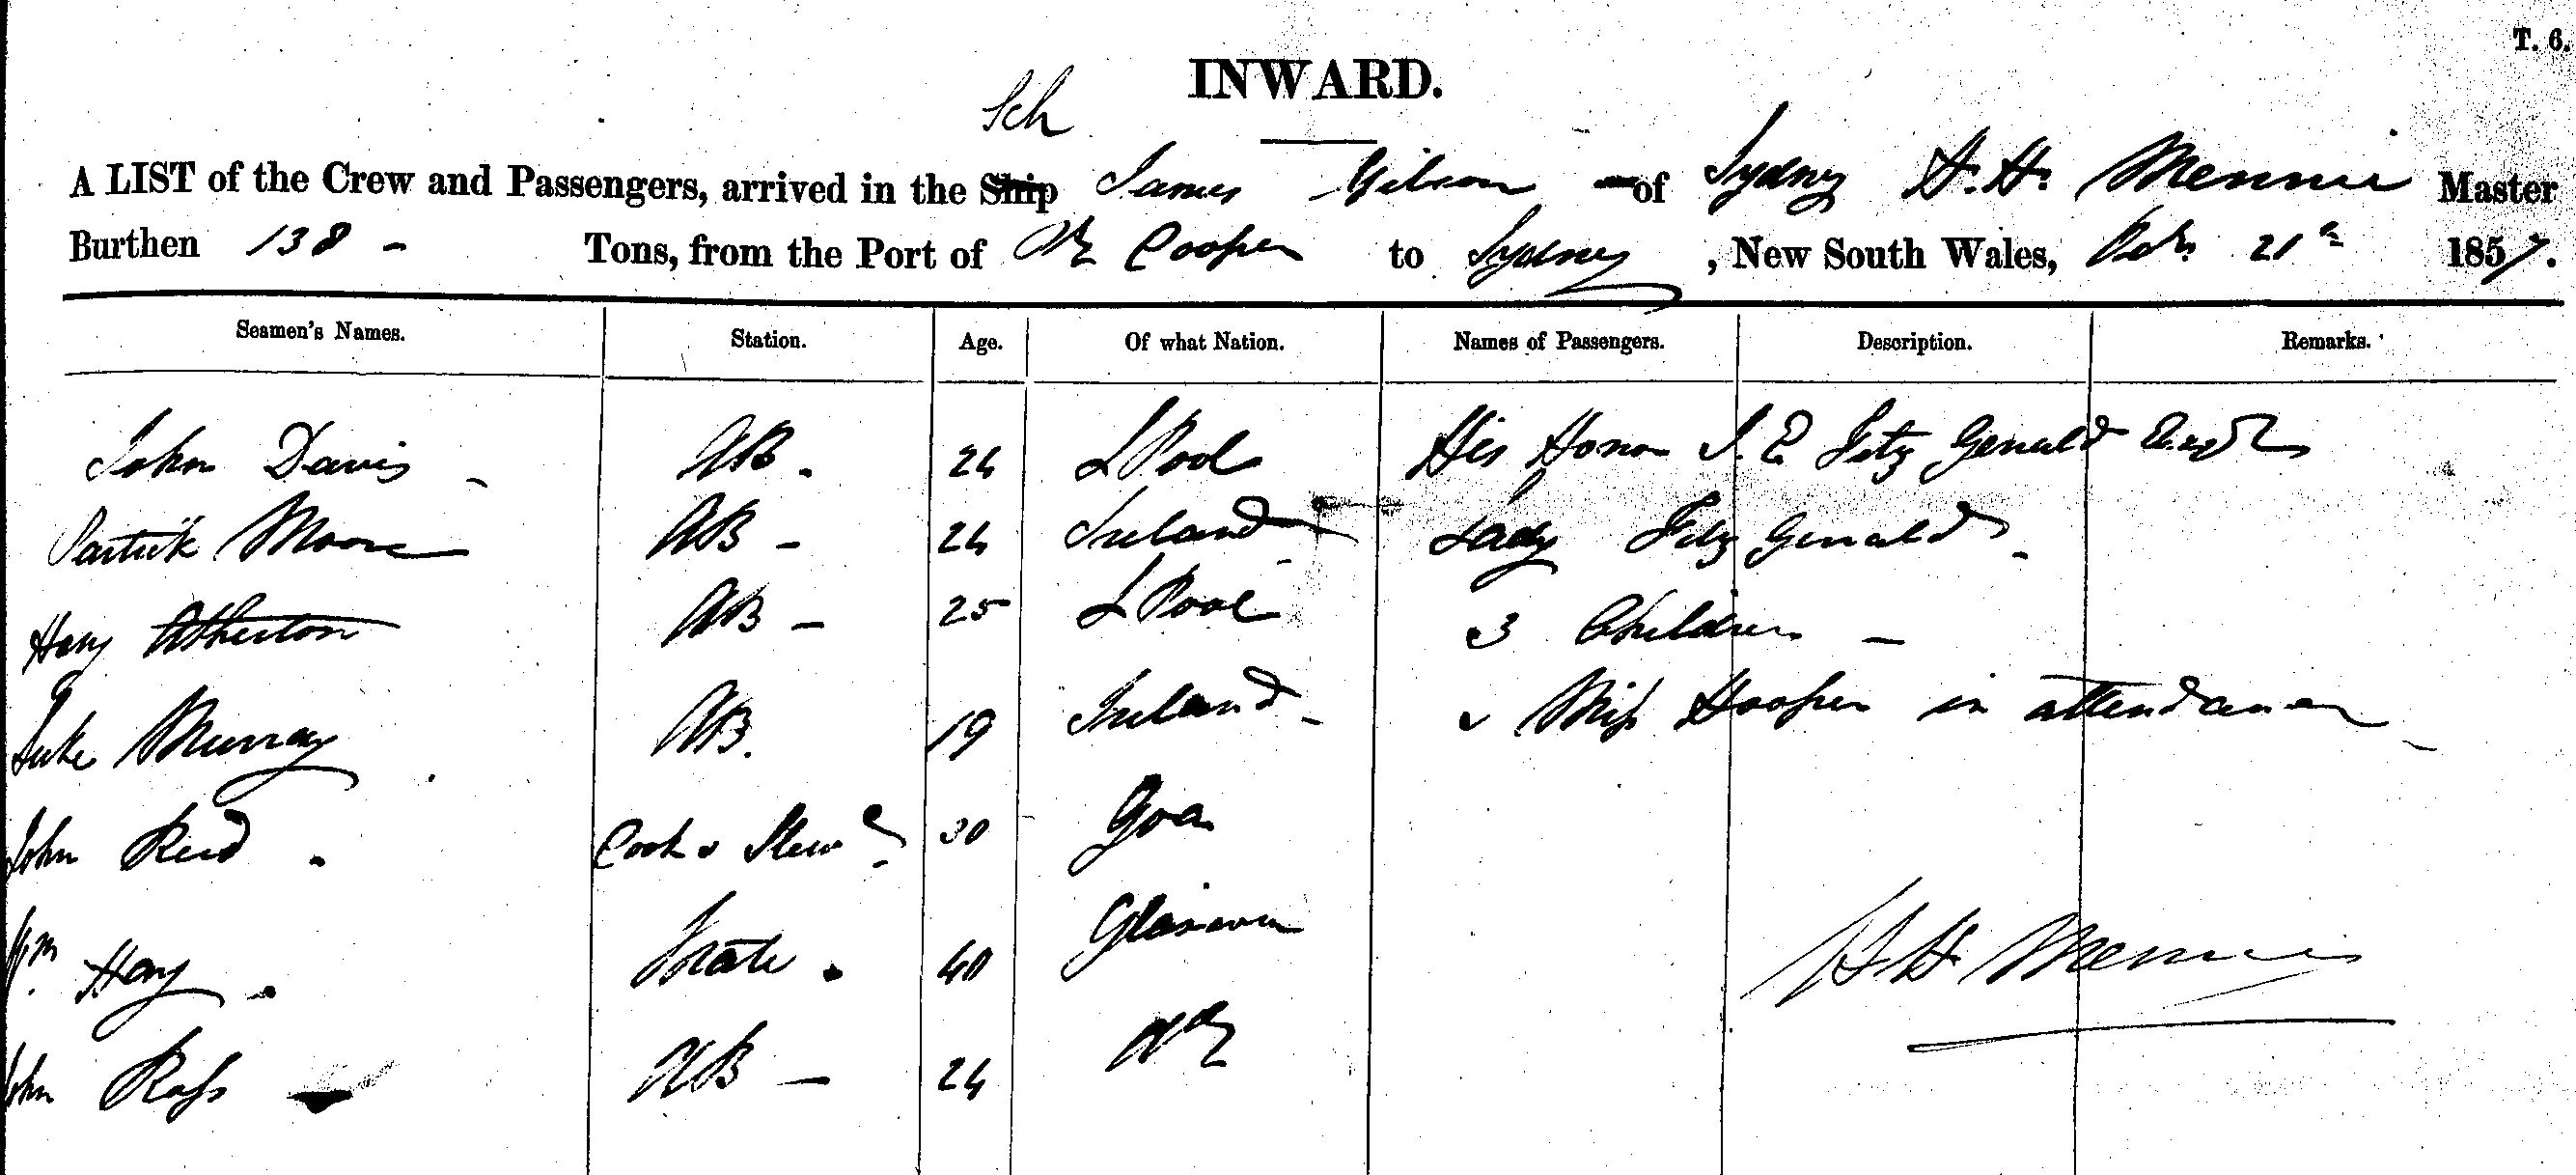 T. 6.
INWARD.
Sch
A LIST of the Crew and Passengers, arrived in the Ship James Gibson of Sydney H. H. Mennie Master
Burthen 138 - Tons, from the Port of Cooper to Sydney, New South Wales, 21 1857.
Seamen's Names. Station. Age. Of what Nation. Names of Passengers. Description. Remarks.
John Davis - AB. 24 LPool His Honor J. E Fitz Gerald Esqr
Patrick Moore AB - 24 Ireland Lady Fitz Gerald -
Hary Atherton AB - 25 LPool 3 Children -
Luke Murray AB. 19 Ireland - & Miss Hooper in attendance
John Reid . Cook & Stewd 30 Goa
Wm Hay . Mate . 40 Glasgow
H H Mennie
John Ross AB - 24 Do